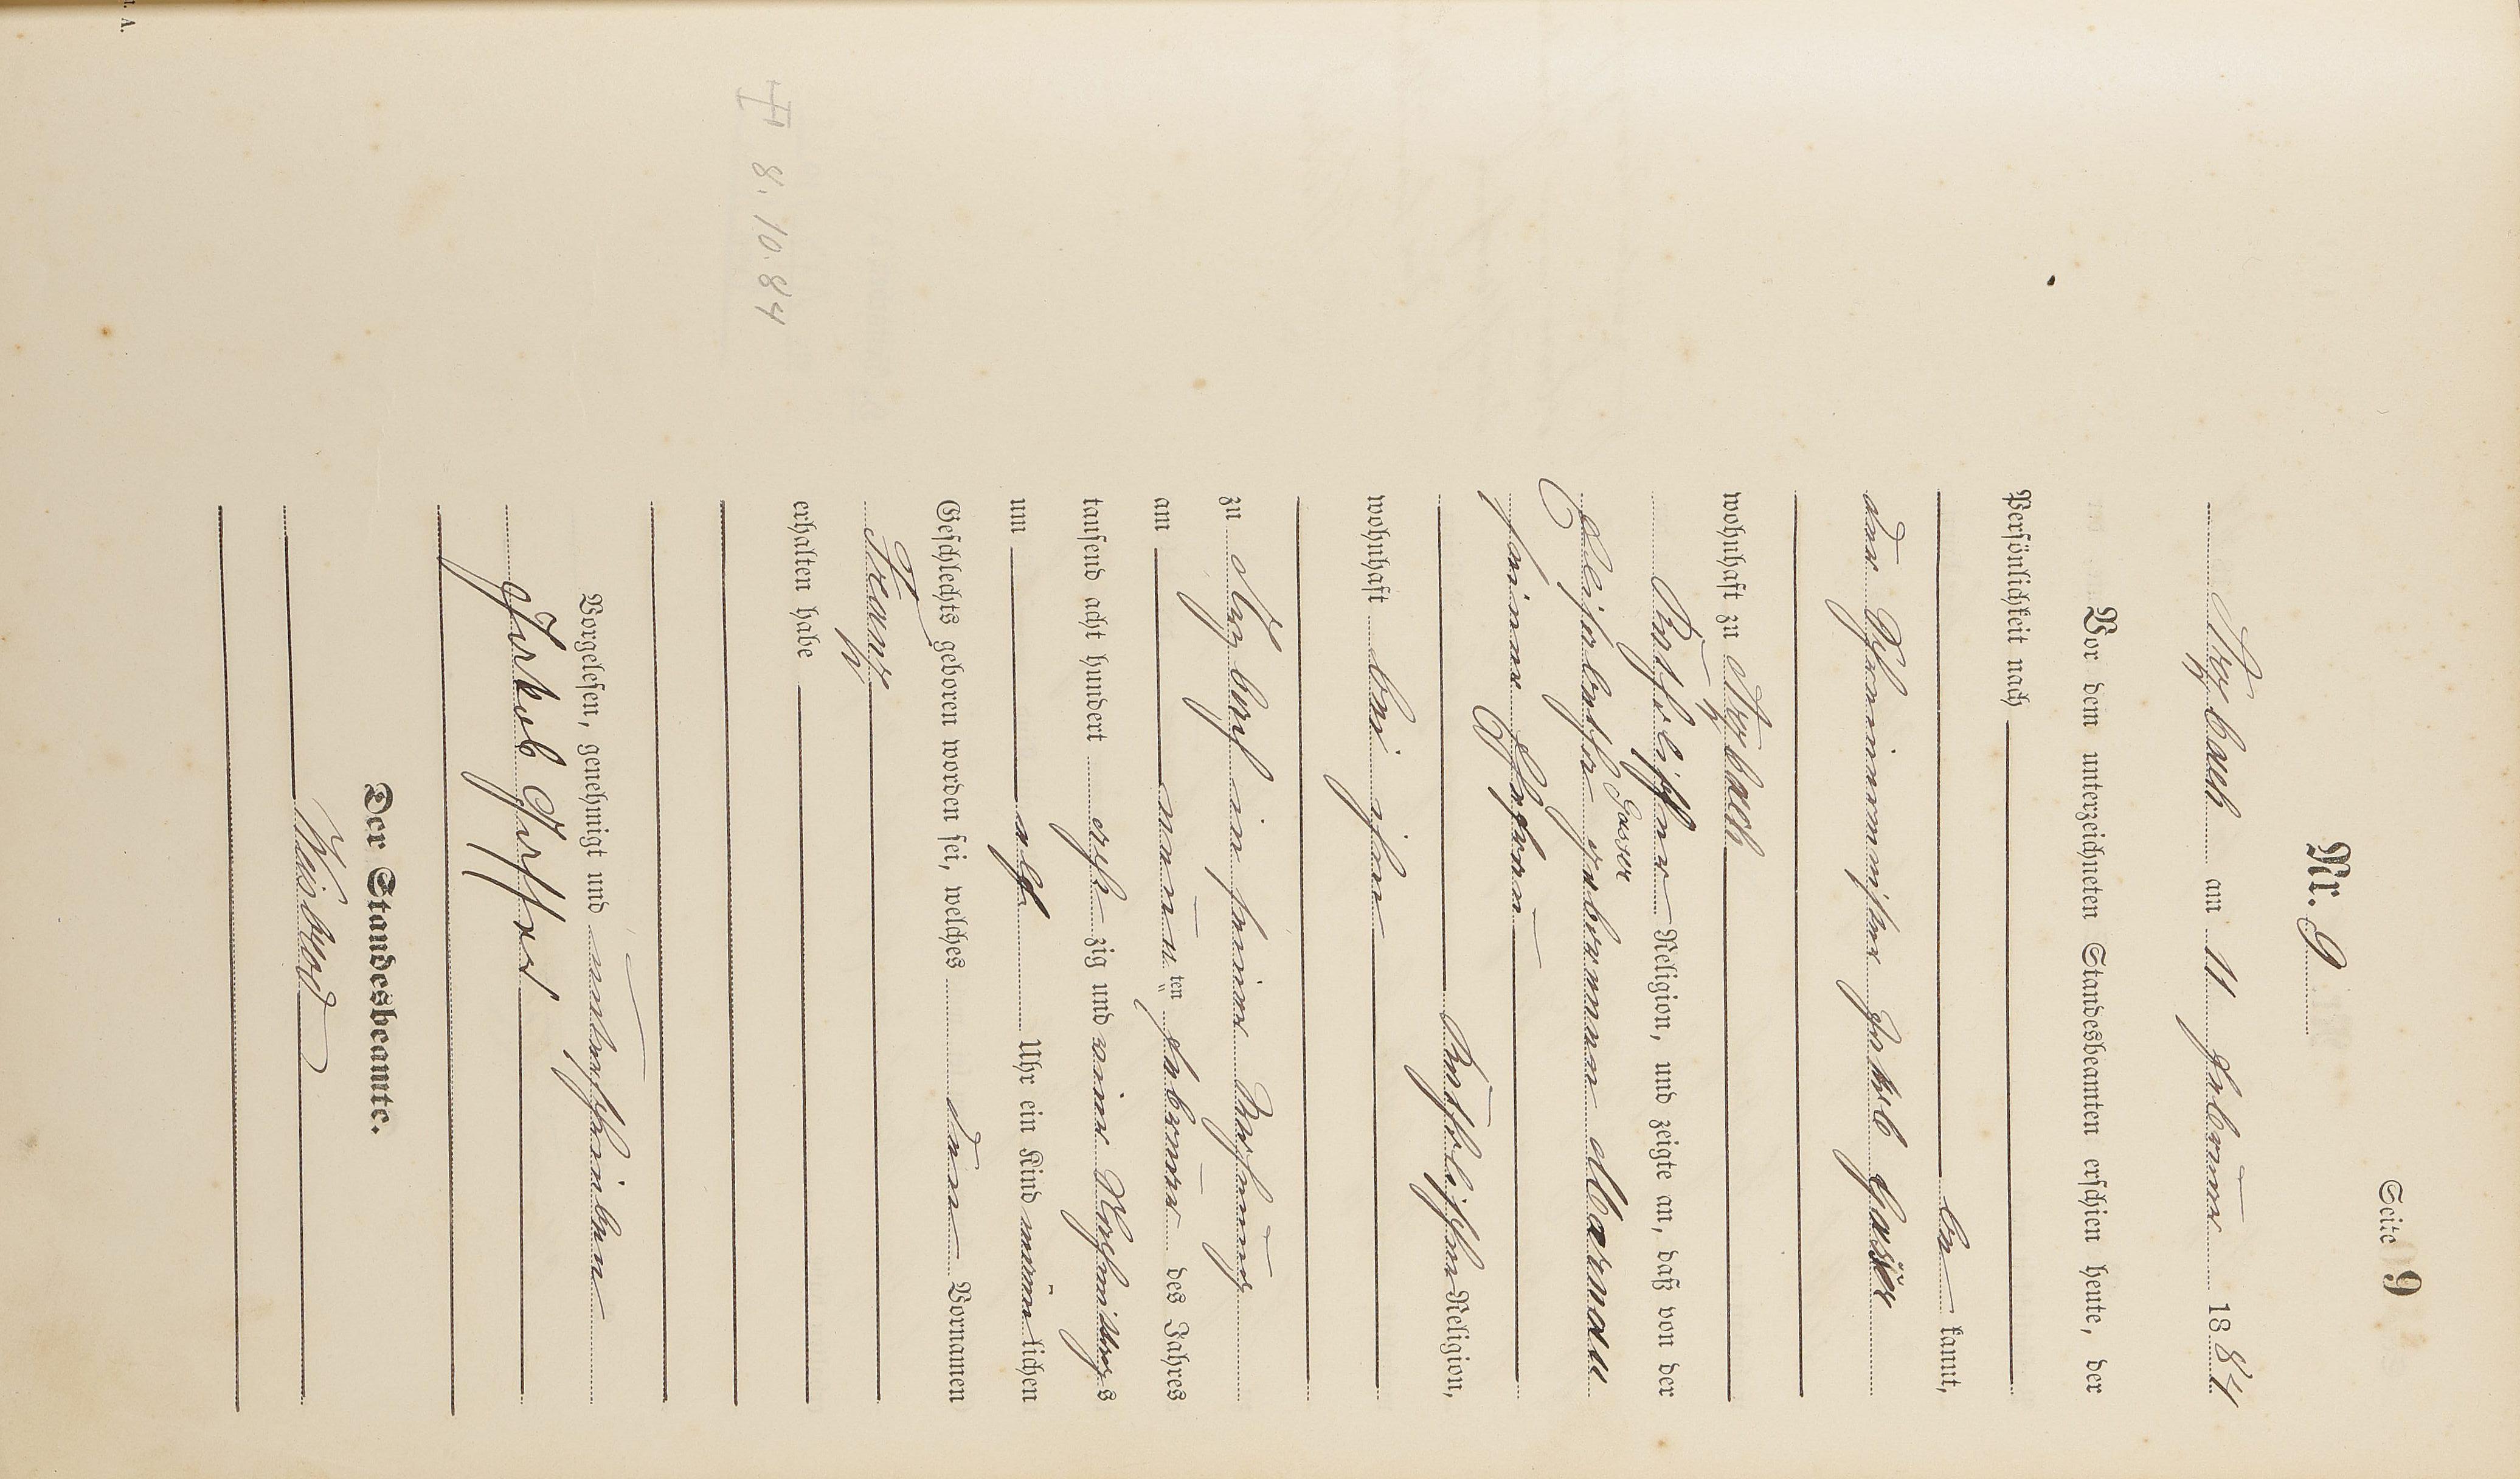 Seite 9
Nr. 9
Arzbach am 11 Februar 1884
Vor dem unterzeichneten Standesbeamten erschien heute, der
Persönlichkeit nach
be kannt,
der Jakob Gasser
wohnhaft zu Arzbach
katholischer Religion, und zeigte an, daß von der
Gasser
Elisabetha geborenen
seiner Ehefrau
katholischen Religion,
wohnhaft bei ihm
zu Arzbach in seiner Wohnung
am neunten Februar des Jahres
tausend acht hundert achtzig und vier Vormittags
um elf Uhr ein Kind männlichen
Geschlechts geboren worden sei, welches den Vornamen
Franz
erhalten habe
Vorgelesen, genehmigt und unterschrieben
Jakob Gasser
Der Standesbeamte.
8. 10. 84